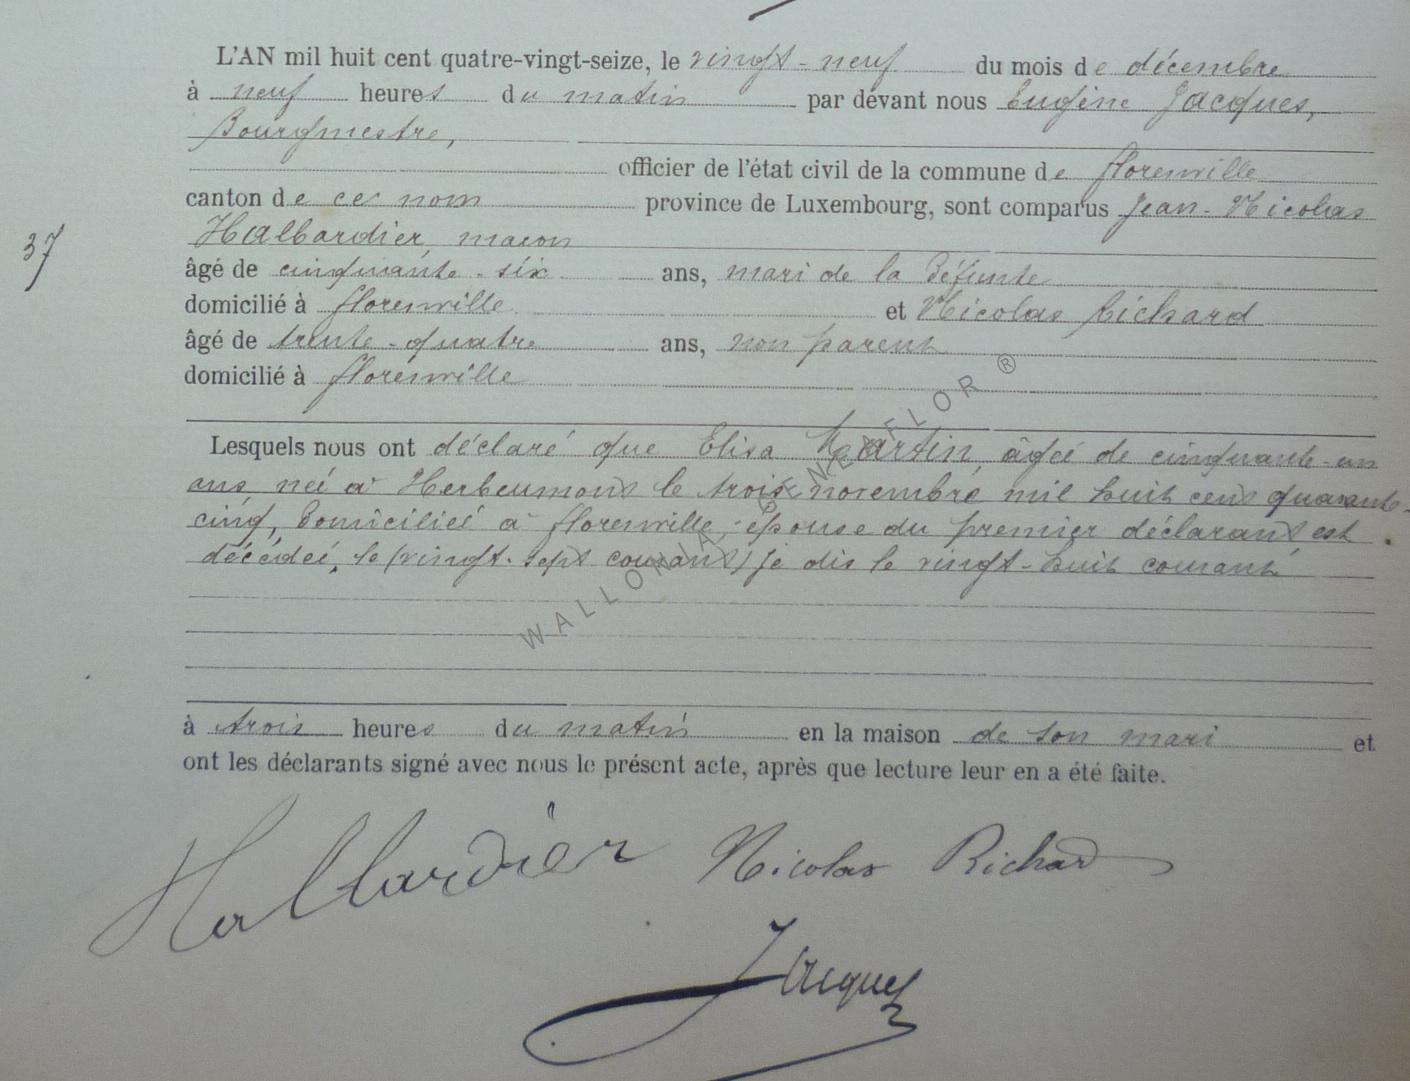 L'AN mil huit cent quatre-vingt-seize, le vingt-neuf du mois de décembre
à neuf heures du matin par devant nous Eugène Jacques,
Bourgmestre,
officier de l'état civil de la commune de florenville
canton de ce nom province de Luxembourg, sont comparus Jean-Nicolas
Halbardier, macon
37
âgé de cinquante-six ans, mari de la défunte
domicilié à florenville et Nicolas Richard
âgé de trente-quatre ans, non parent
domicilié à florenville
Lesquels nous ont déclaré que Elisa Martin, âgée de cinquante-un
ans, née à Herbeumont le trois novembre mil huit cent quarante-
cinq, domiciliée à florenville, épouse du premier déclarant, est
décédée, le (vingt-sept courant) je dis le vingt-huit courant
à trois heures du matin en la maison de son mari et
ont les déclarants signé avec nous le présent acte, après que lecture leur en a été faite.
Halbardier Nicolas Richard
Jacques
WALLONIA GENEAFLOR ®